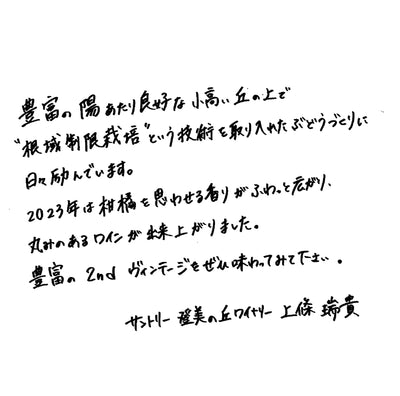 豊富の陽あたり良好な小高い丘の上で
"根域制限栽培"という技術を取り入れたぶどうづくりに
日々励んでいます。
2023年は柑橘を思わせる香りがふわっと広がり、
丸みのあるワインが出来上がりました。
豊富の2ndヴィンテージをぜひ味わってみて下さい。
サントリー登美の丘ワイナリー 上條瑞貴